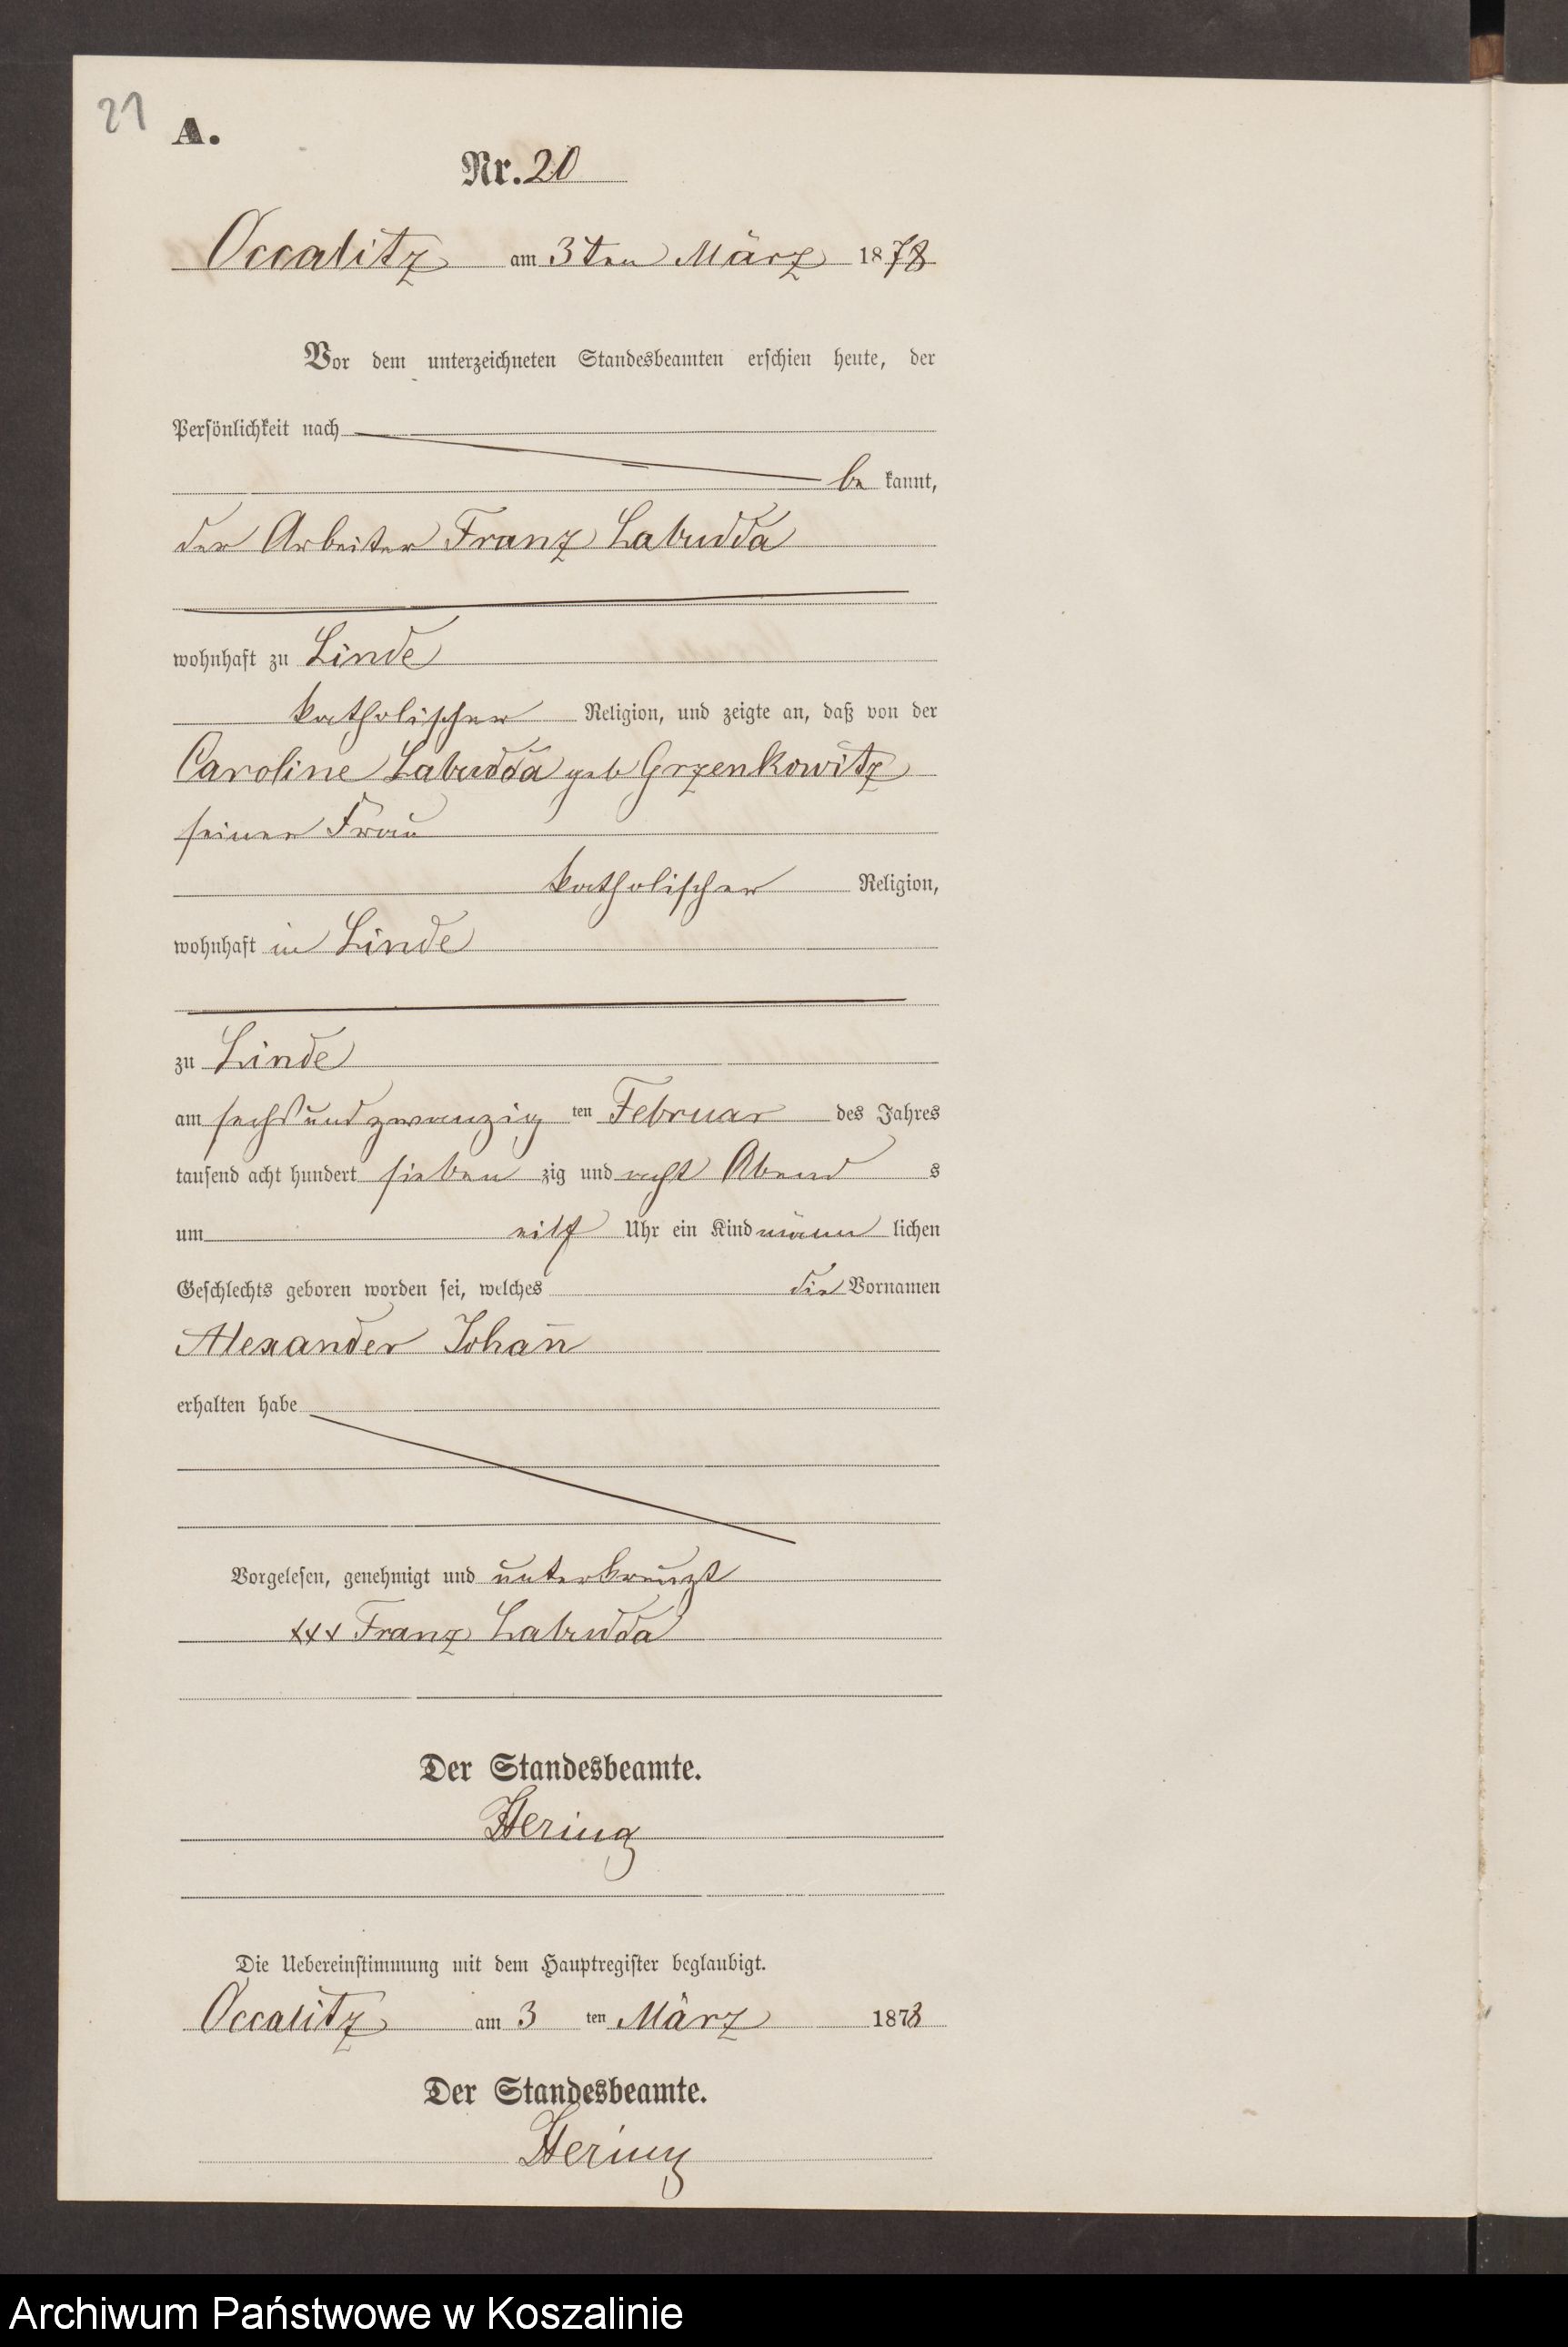 21
A.
Nr. 20
Occalitz am 3ten März 1878
Vor dem unterzeichneten Standesbeamten erschien heute, der
Persönlichkeit nach
be kannt,
der Arbeiter Franz Labudda
wohnhaft zu Linde
katholischer Religion, und zeigte an, daß von der
Caroline Labudda geb Grzenkowitz
seiner Frau
katholischer Religion,
wohnhaft in Linde
zu Linde
am sechsundzwanzig ten Februar des Jahres
tausend acht hundert sieben zig und acht Abend s
um eilf Uhr ein Kind männ lichen
Geschlechts geboren worden sei, welches die Vornamen
Alexander Johan̄
erhalten habe
Vorgelesen, genehmigt und unterkreuzt
xxx Franz Labudda
Der Standesbeamte.
Hering
Die Uebereinstimmung mit dem Hauptregister beglaubigt.
Occalitz am 3 ten März 1878
Der Standesbeamte.
Hering
Archiwum Państwowe w Koszalinie